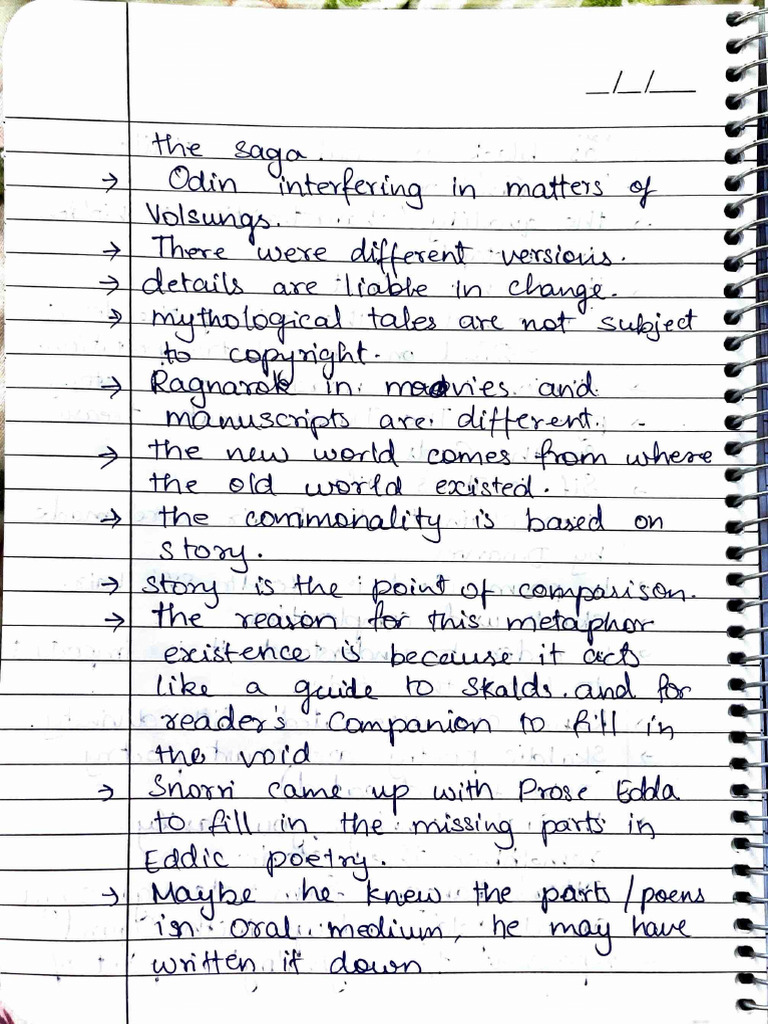 _/_/__
the saga.
→ Odin interfering in matters of
Volsungs.
→ There were different versions.
→ details are liable in change.
→ mythological tales are not subject
to copyright.
→ Ragnarok in movies and
manuscripts are different.
→ the new world comes from where
the old world existed.
→ the commonality is based on
story.
→ story is the point of comparison.
→ the reason for this metaphor
existence is because it acts
like a guide to Skalds and for
reader's Companion to fill in
the void
→ Snorri came up with Prose Edda
to fill in the missing parts in
Eddic poetry.
→ Maybe he knew the parts/poems
in oral medium, he may have
written it down